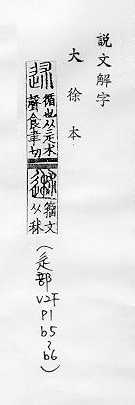 說文解字
大徐本
述 循也从辵术
聲食聿切
籒文
从秫
(辵部
V2下
P1
b5~
b6)